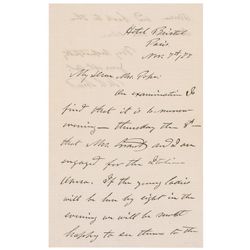 Hotel Bristol
Paris
Nov. 7th, 77
My Dear Mrs. Pope:
On examination I
find that it is to-morrow
evening—thursday the 8th—
that Mrs. Grant and I are
engaged for the Italian
Opera. If the young ladies
will be here by eight in the
evening we will be most
happy to see them to the